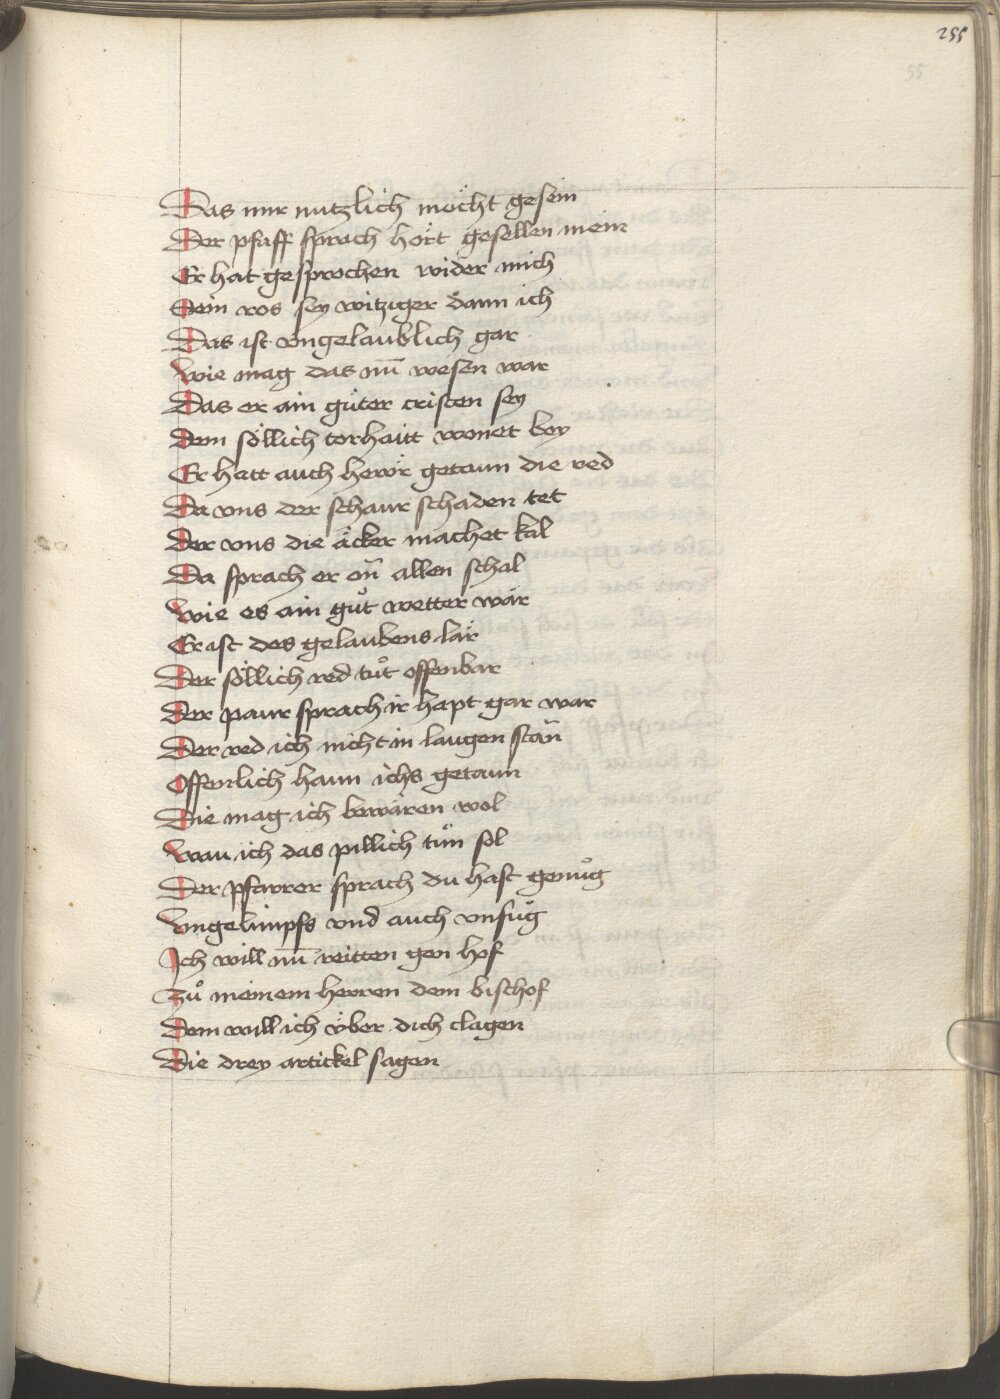 255
55
Das mir nutzlich möcht gesein
Der pfaff sprach hört gesellen mein
Er hat gesprochen wider mich
Sein ros sey witziger dann ich
Das ist vngelaublich gar
Wie mag das nū wesen war
Das er ain güter cristen sey
Dem söllich torhaitt wonet bey
Er hatt auch hewr getaun die red
Da vns der schaur schaden tet
Der vns die äcker machet kal
Da sprach er on̄ allen schal
Wie es ain guͦt wetter wär
Er ist des gelaubens lär
Der söllich red tuͦt offenbar
Der paur sprach ir hapt gar war
Der red ich nicht in laugen stān
Offenlich haun ichs getaun
Die mag ich bewären wol
Wan ich das pillich tün sol
Der pfarrer sprach du hast genuͦg
Vngelimpfs vnd auch vnfuͦg
Ich will nū reitten gen hof
Zuͦ meinem herren dem bischof
Dem will ich über dich clagen
Die drey artickel sagen